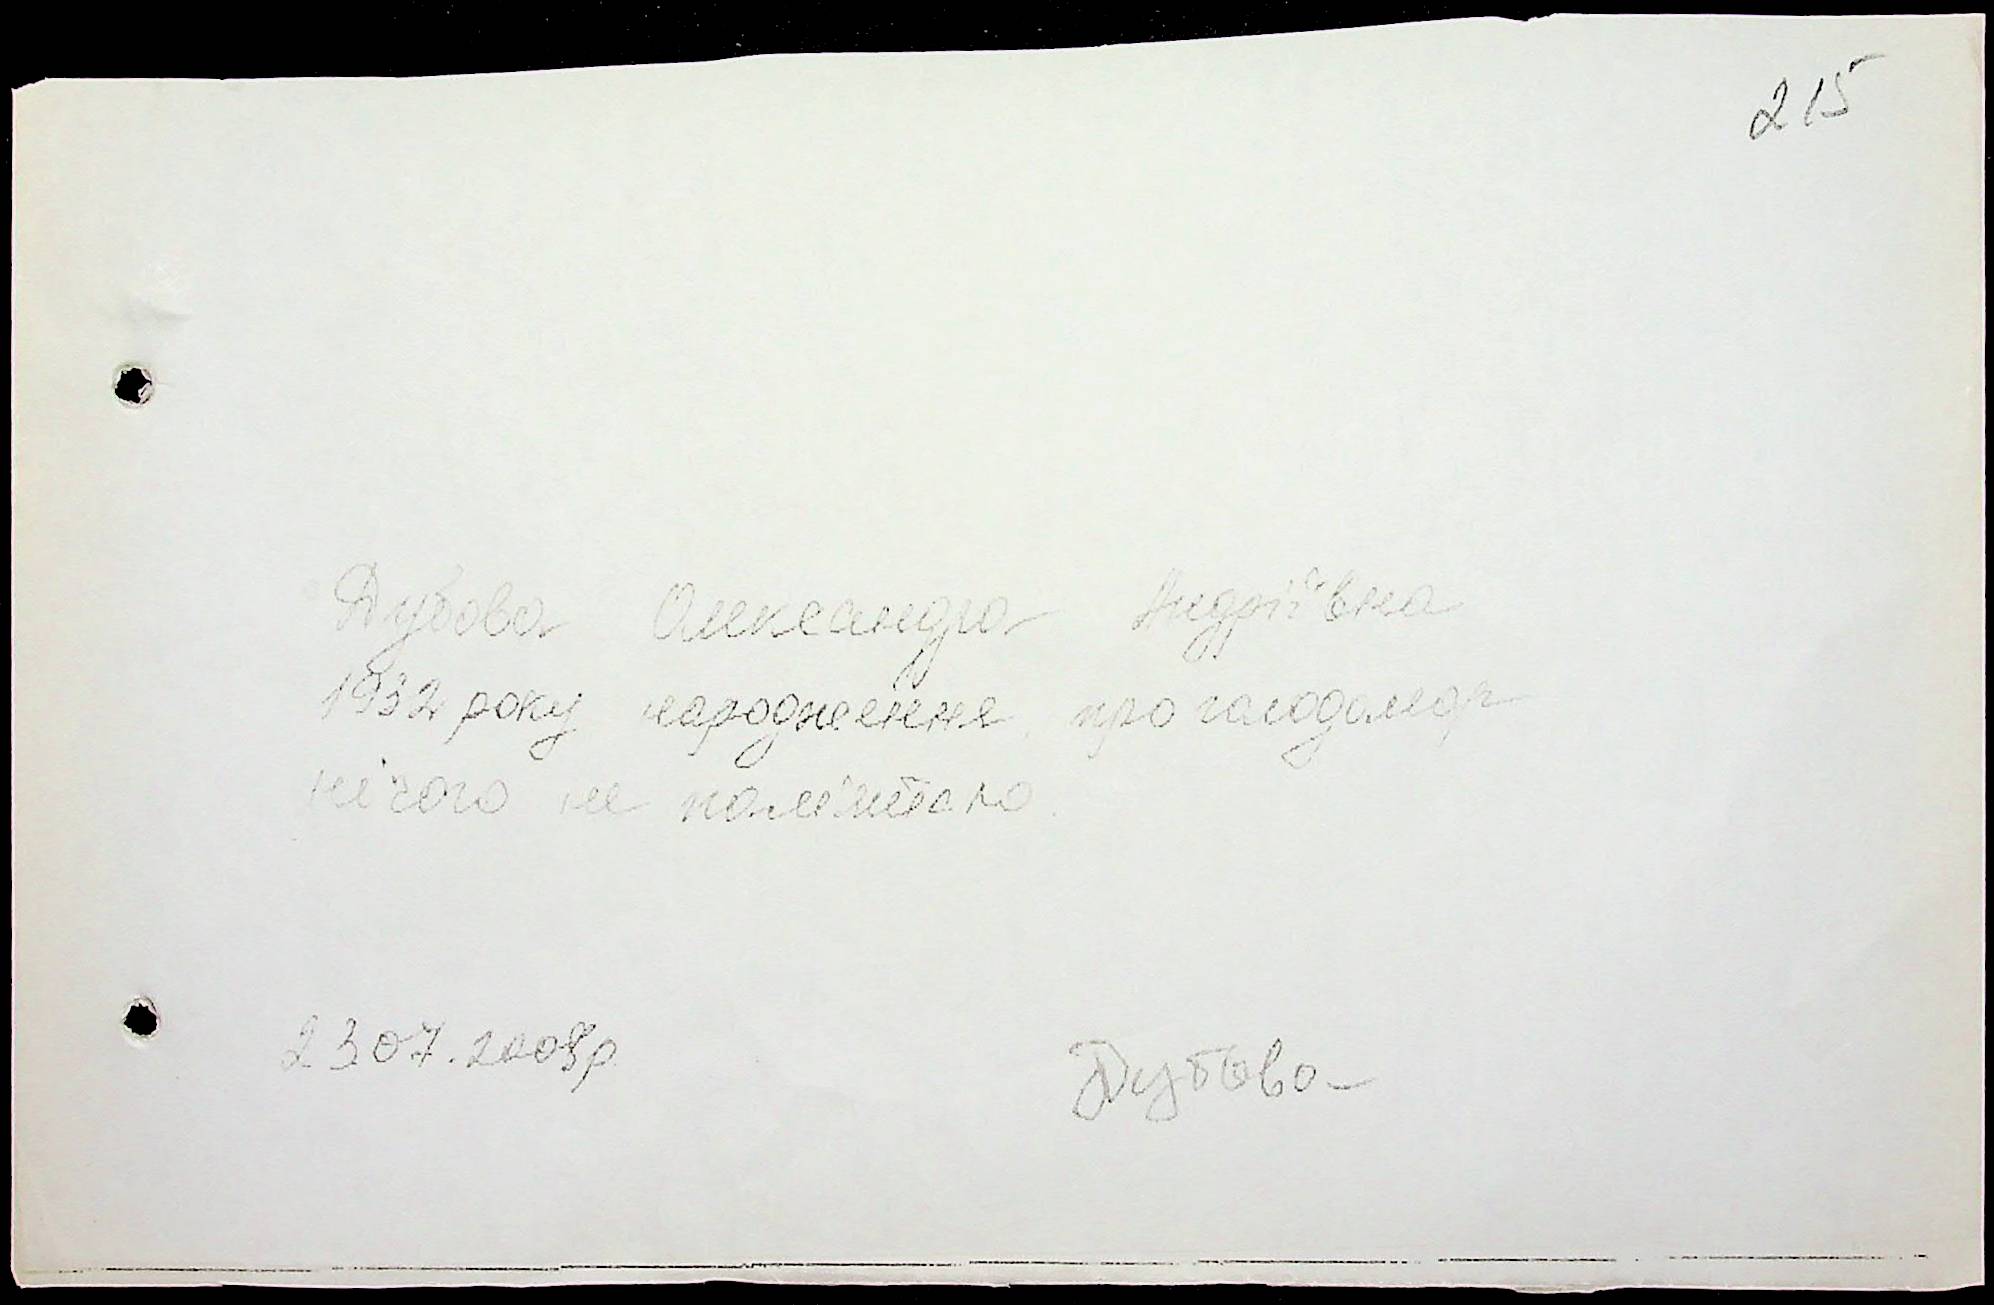 215
Дубова Олександра Андріївна
1932 року народження про голодомор
нічого не пам'ятаю.
23 07. 2008р
Дубова